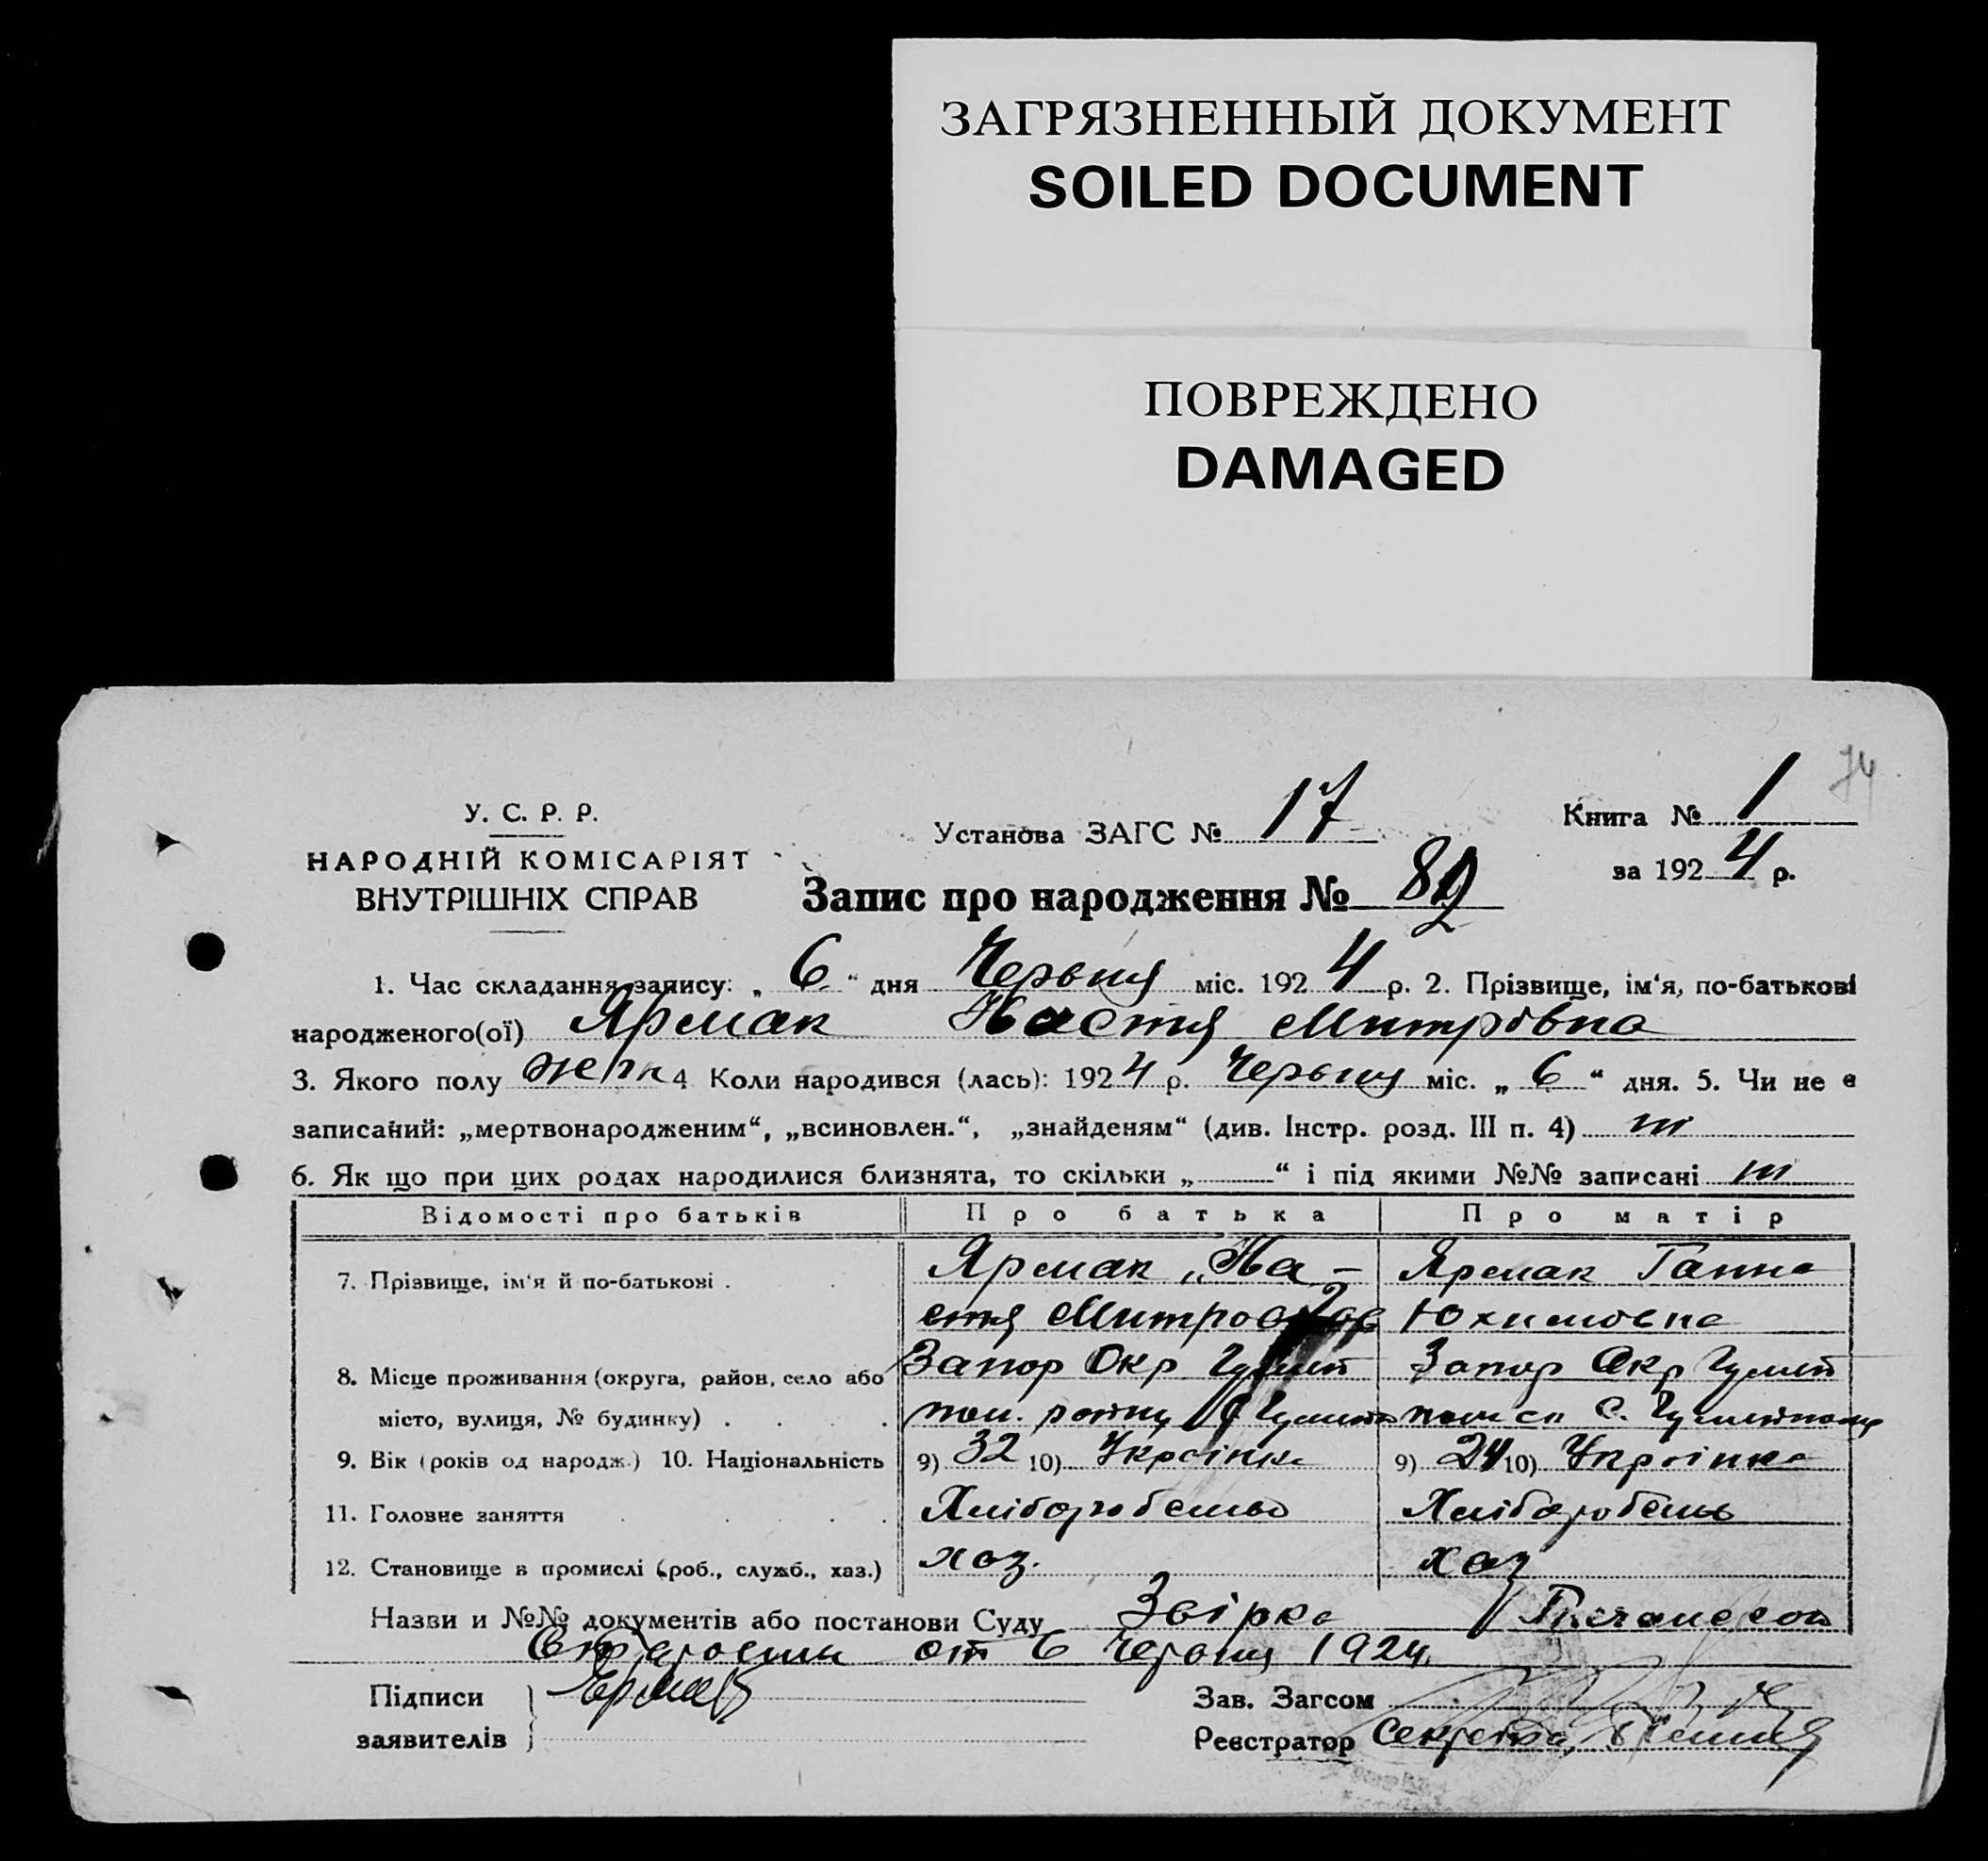 ЗАГРЯЗНЕННЫЙ ДОКУМЕНТ
SOILED DOCUMENT
ПОВРЕЖДЕНО
DAMAGED
74
У. С. Р. Р.
НАРОДНІЙ КОМІСАРІЯТ
ВНУТРІШНІХ СПРАВ
Установа ЗАГС № 17
Книга № 1
за 1924 р.
Запис про народження № 82
1. Час складання запису: „ 6 “ дня Червня міс. 1924 р. 2. Прізвище, ім‘я, по-батькові
народженого(ої) Ярмак Настя Митрівна
3. Якого полу жень 4 Коли народився (лась): 1924 р. Червня міс. „ 6 “ дня. 5. Чи не є
записаний: „мертвонародженим“, „всиновлен.“, „знайденям“ (див. Інстр. розд. III п. 4) ні
6. Як що при цих родах народилися близнята, то скільки „ “ і під якими №№ записані ні
Відомості про батьків Про батька Про матір
7. Прізвище, ім‘я й по-батькові . Ярмак На- Ярмак Ганна
стя Юхимовна
8. Місце проживання (округа, район, село або Запор Окр Гуляй Запор Окр Гуляй
місто, вулиця, № будинку) . . . . пол. с.
9. Вік (років од народж.) 10. Національність 9) 32 10) Українка 9) 24 10) Українка
11. Головне заняття . . . . Хліборобство Хлібороб
12. Становище в промислі (роб., служб., хаз.) хаз. хаз
Назви и №№ документів або постанови Суду Звірка
от 6 Червня 1924
Підписи
заявителів
Зав. Загсом
Реєстратор